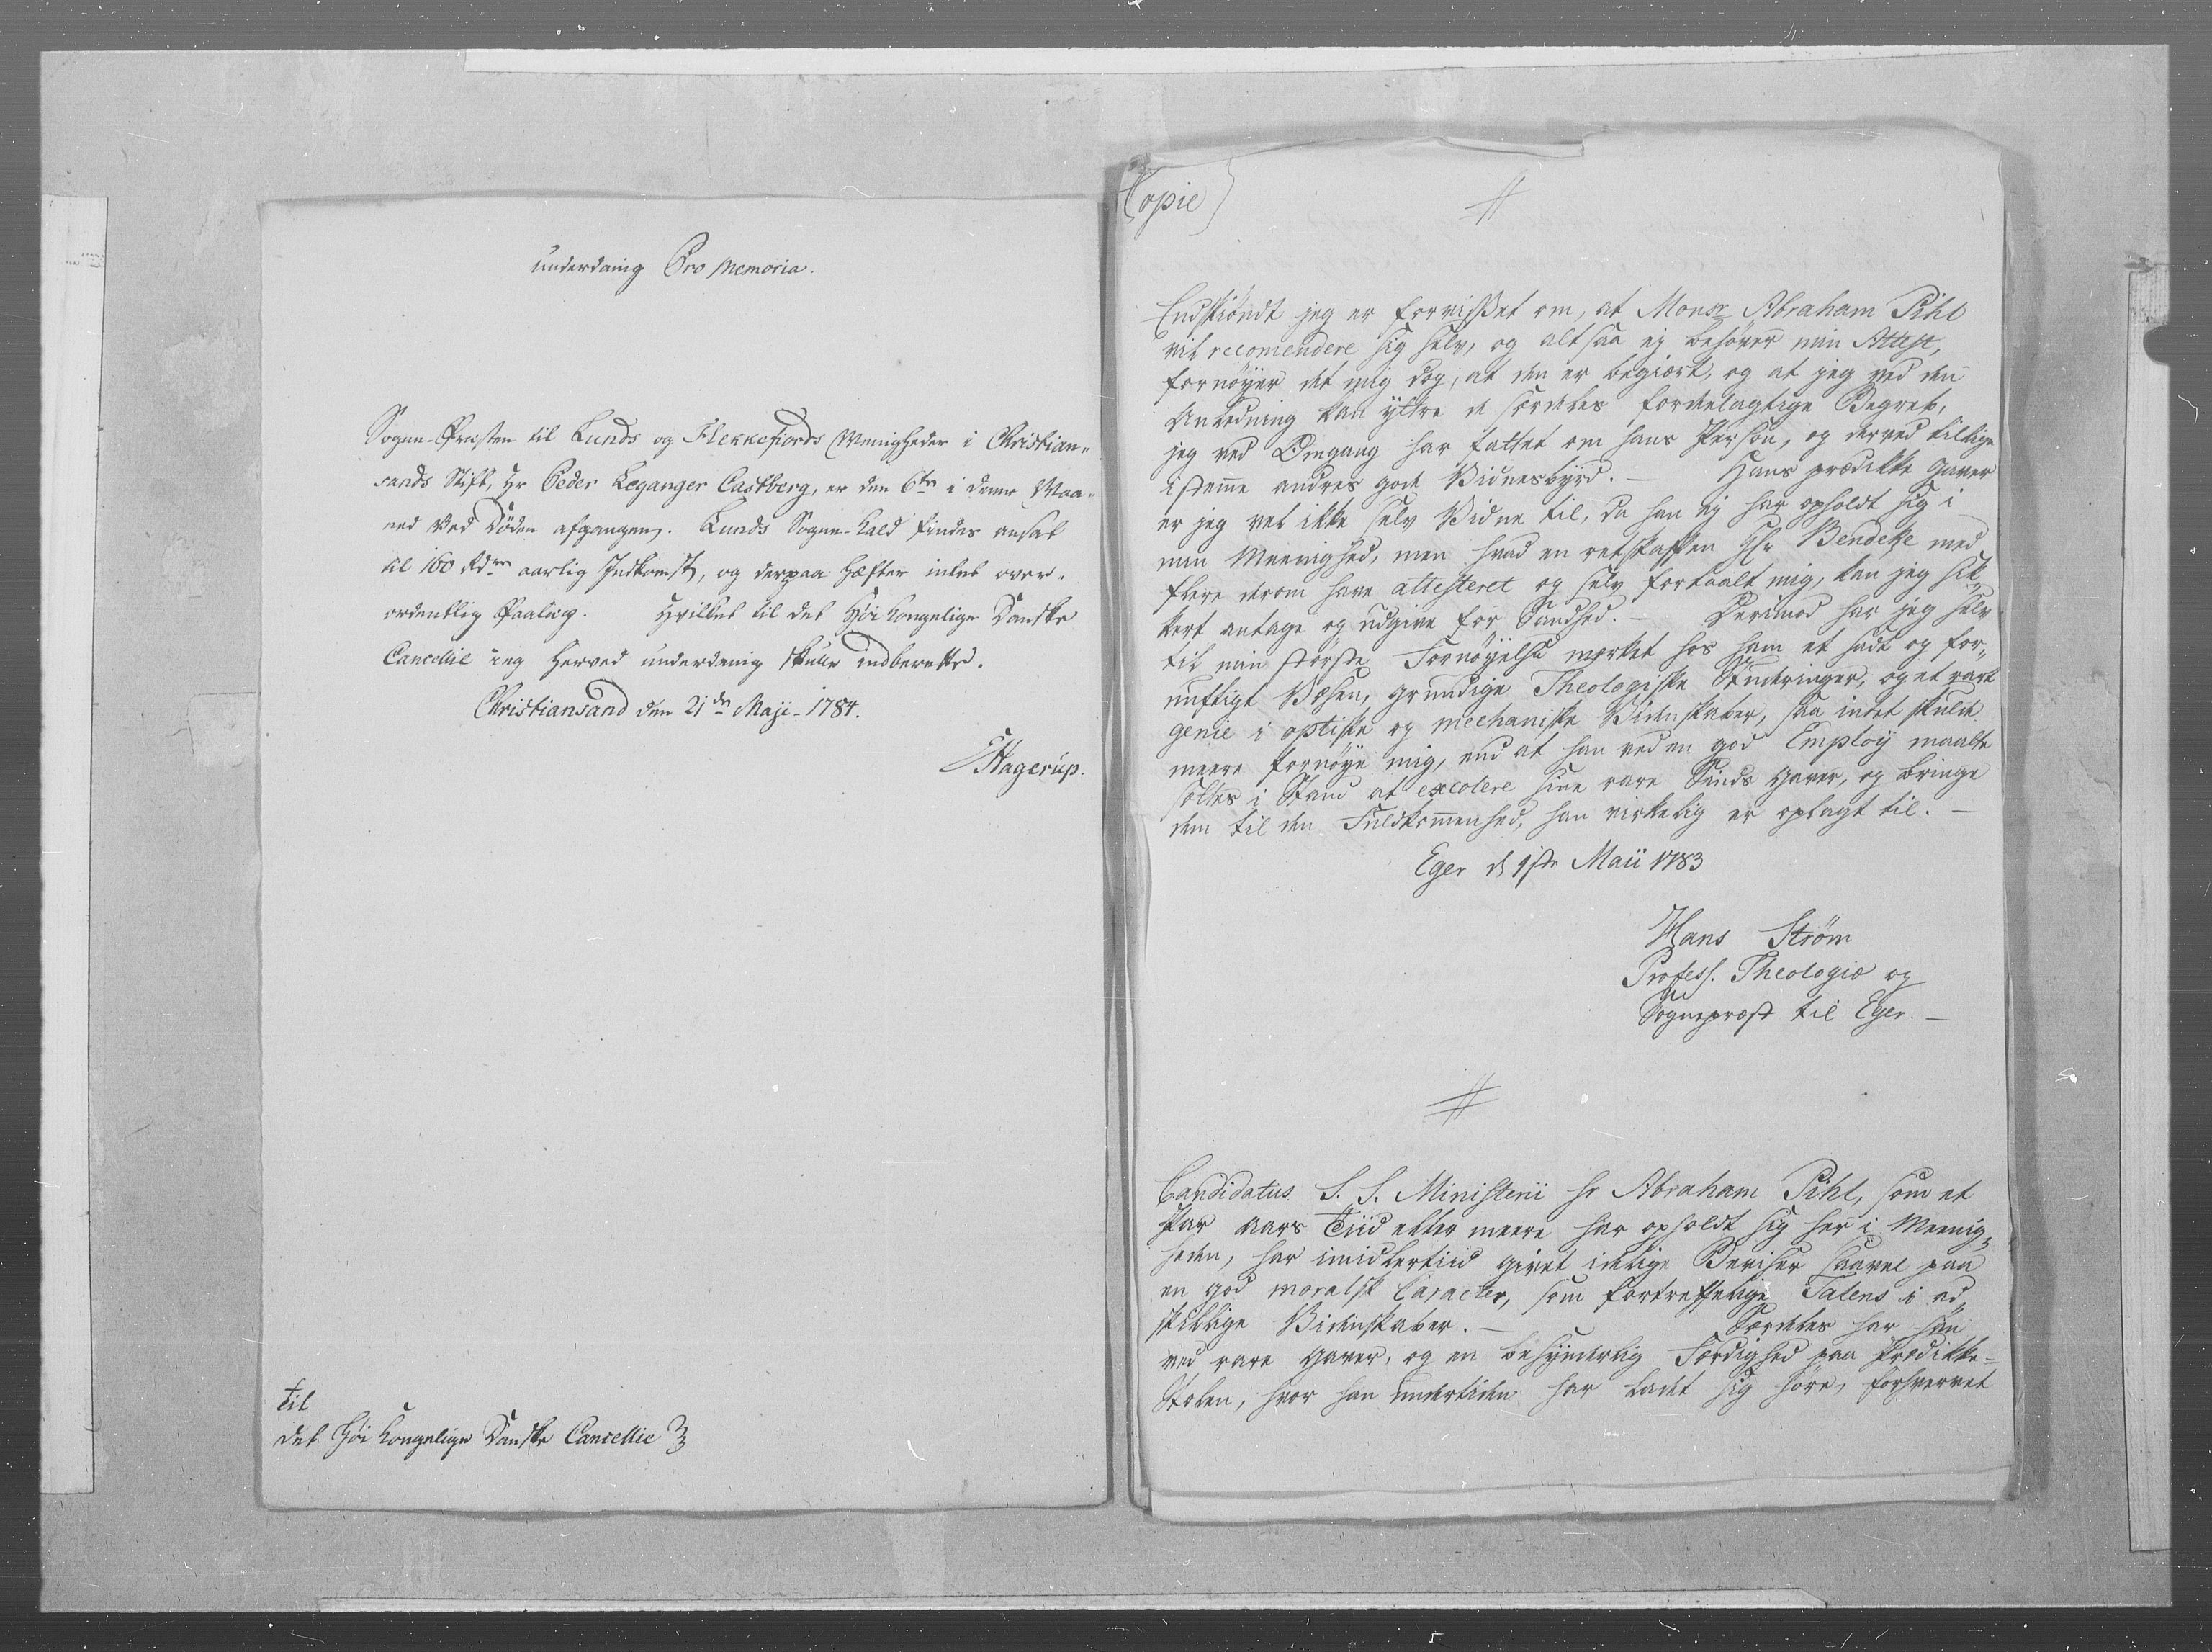 underdanig Pro Memoria.
Sogne-Præsten til Lunds og Flekkefiords Menigheder i Christian-
sands Stift, Hr Peder Leganger Castberg, er den 6te i denne Maa-
ned ved Døden afgangen. Lunds Sogne-Kald findes ansat
til 160 Rdr aarlig Indkomst, og derpaa hæfter intet over-
ordentlig Paalæg. Hvilket til det Høi Kongelige Danske
Cancellie ieg herved underdanig skulle indberette.
Christiansand den 21de Maji 1784.
Hagerup.
til
det Høi Kongelige Danske Cancellie
Copie
Endskiøndt jeg er forvisset om, at Monsr Abraham Pihl
vil recomendere sig selv, og altsaa ej behøver min Attest,
fornøyer det mig dog, at den er begiært, og at jeg ved den
Anledning kan yttre de særdeles fordelagtige Begreb,
jeg ved Omgang har fattet om hans Person, og derved tillige
istemme andres gode Vidnesbyrd. – Hans prædikke Gaver
er jeg vel ikke selv Vidne til, da han ej har opholdt sig i
min Meenighed, men hvad en retskaffen Hr Bendeke med
flere derom have attesteret og selv fortaalt mig, kan jeg sik-
kert antage og udgive for Sandhed. – Derimod har jeg selv
til min største Fornøyelse mærket hos ham et sadt og for-
nuftigt Væsen, grundige Theologiske Studeringer, og et rart
genie i optiske og mechaniske Videnskaber, saa intet skulde
meere fornøye mig, end at han ved en god Employ maatte
sættes i Stand at excolere sine rare Sinds Gaver, og bringe
dem til den Fuldkommenhed, han virkelig er oplagt til. –
Eger d 1ste Maii 1783
Hans Strøm
Profess. Theologiæ og
Sognepræst til Eger. –
Candidatus S. S. Ministerii Hr Abraham Pihl, som et
Par Aars Tiid eller meere har opholdt sig her i Meenig-
heden, har imidlertiid givet idelige Beviser saavel paa
en god moralsk Caracter, som fortreffelige Talens i ad-
skillige Videnskaber. – Særdeles har han
ved rare Gaver, og en besynderlig Færdighed paa Prædikke-
Stolen, hvor han undertiden har ladet sig høre, forhvervet